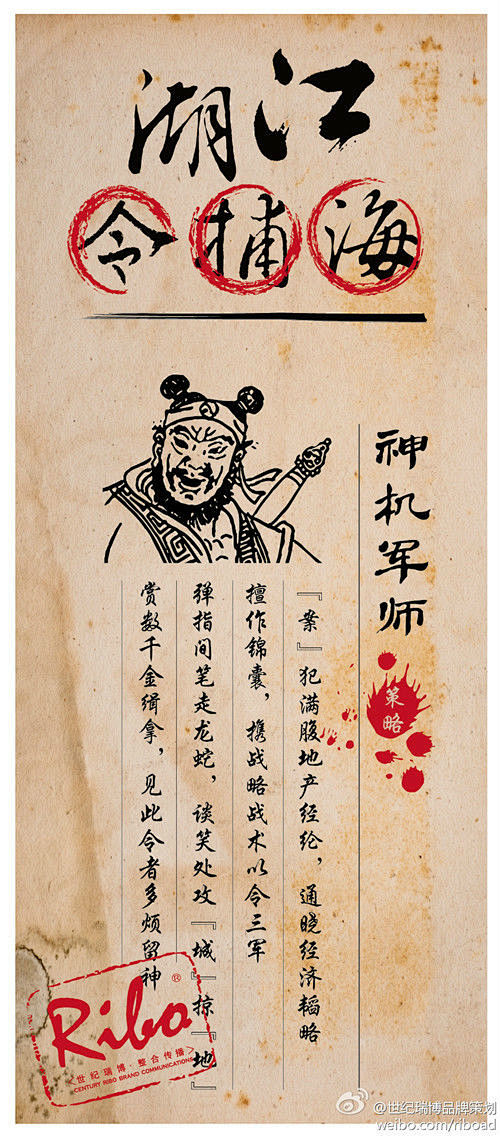 江湖
海捕令
神机军师
策略
『案』犯满腹地产经纶，通晓经济韬略
擅作锦囊，携战略战术以令三军
弹指间笔走龙蛇，谈笑处攻『城』掠『地』
赏数千金缉拿，见此令者多烦留神
Ribo®
<世纪瑞博·整合传播>
CENTURY RIBO BRAND COMMUNICATIONS
@世纪瑞博品牌策划
weibo.com/riboad